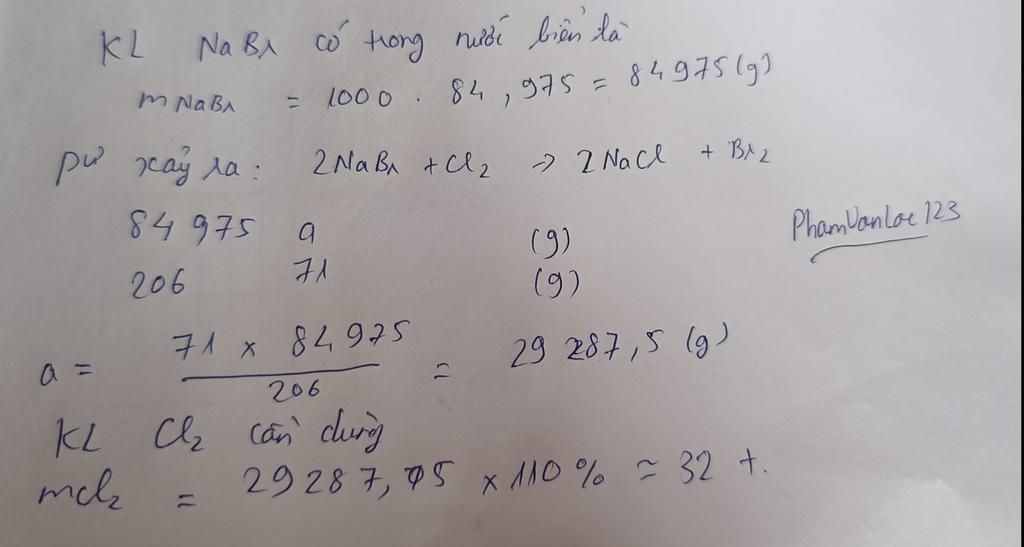 KL NaBr có trong nước biển là
mNaBr = 1000 . 84,975 = 84975 (g)
pư xảy ra: 2NaBr + Cl2 → 2NaCl + Br2
84 975 a (g)
206 71 (g)
PhamVanLoc123
a = 71 x 84975 / 206 = 29 287,5 (g)
KL Cl2 cần dùng
mCl2 = 29287,75 x 110% ≈ 32 t.